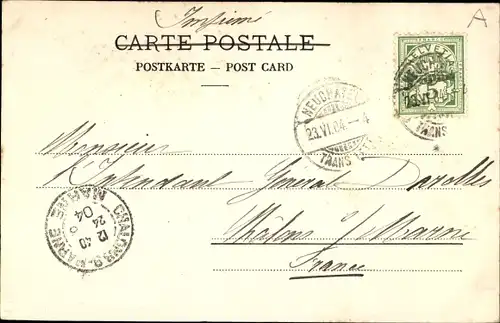 Imprimé
A
CARTE POSTALE
POSTKARTE – POST CARD
HELVETIA
5
NEUCHATEL
23.VI.04.–4
TRANS
Monsieur
L'Intendant Général
Châlons s/Marne
France
CHALONS-S-MARNE
MARNE
12 40
24 6
04